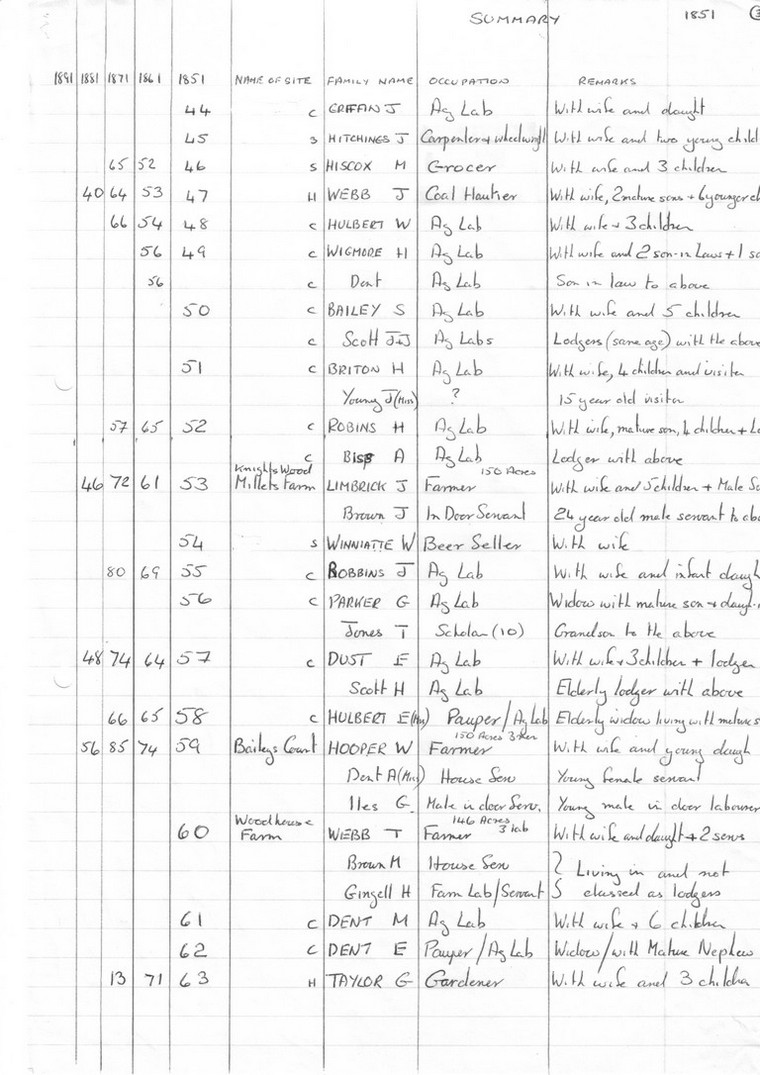 SUMMARY 1851
1891 1881 1871 1861 1851 NAME OF SITE FAMILY NAME OCCUPATION REMARKS
44 C GRIFFAN J Ag Lab With wife and daught
45 S HITCHINGS J Carpenter + wheelwright With wife and two young child
65 52 46 S HISCOX M Grocer With wife and 3 children
40 64 53 47 H WEBB J Coal Haulier With wife, 2 mature sons + 6 younger ch
66 54 48 C HULBERT W Ag Lab With wife + 3 children
56 49 C WIGMORE H Ag Lab With wife and 2 son-in Laws + 1
56 C Dent Ag Lab Son in law to above
50 C BAILEY S Ag Lab With wife and 5 children
C Scott J+J Ag Labs Lodgers (same age) with the above
51 C BRITON H Ag Lab With wife, 4 children and visitor
Young J (Miss) ? 15 year old visitor
57 65 52 C ROBINS H Ag Lab With wife, mature son, 4 children +
C Bisp A Ag Lab Lodger with above
Knights Wood 150 Acres
46 72 61 53 Millets Farm LIMBRICK J Farmer With wife and 5 children + Male
Brown J In Door Servant 24 year old male servant to
54 S WINNIATTE W Beer Seller With wife
80 69 55 C ROBBINS J Ag Lab With wife and infant daugh
56 C PARKER G Ag Lab Widow with mature son + daugh
Jones T Scholar (10) Grandson to the above
48 74 64 57 C DUST E Ag Lab With wife + 3 children + lodger
Scott H Ag Lab Elderly lodger with above
66 65 58 C HULBERT E Pauper / Ag Lab Elderly widow living with mature s
150 Acres 3 men
56 85 74 59 Baileys Court HOOPER W Farmer With wife and young daugh
Dent A (Miss) House Serv Young female servant
Iles G. Male in door Serv. Young male in door labourer
Woodhouse 146 Acres
60 Farm WEBB T Farmer 3 lab With wife and daught + 2 sons
Brown M House Serv } Living in and not
Gingell H Farm Lab/Servant } classed as lodgers
61 C DENT M Ag Lab With wife + 6 children
62 C DENT E Pauper / Ag Lab Widow/with Mature Nephew
13 71 63 H TAYLOR G Gardener With wife and 3 childre